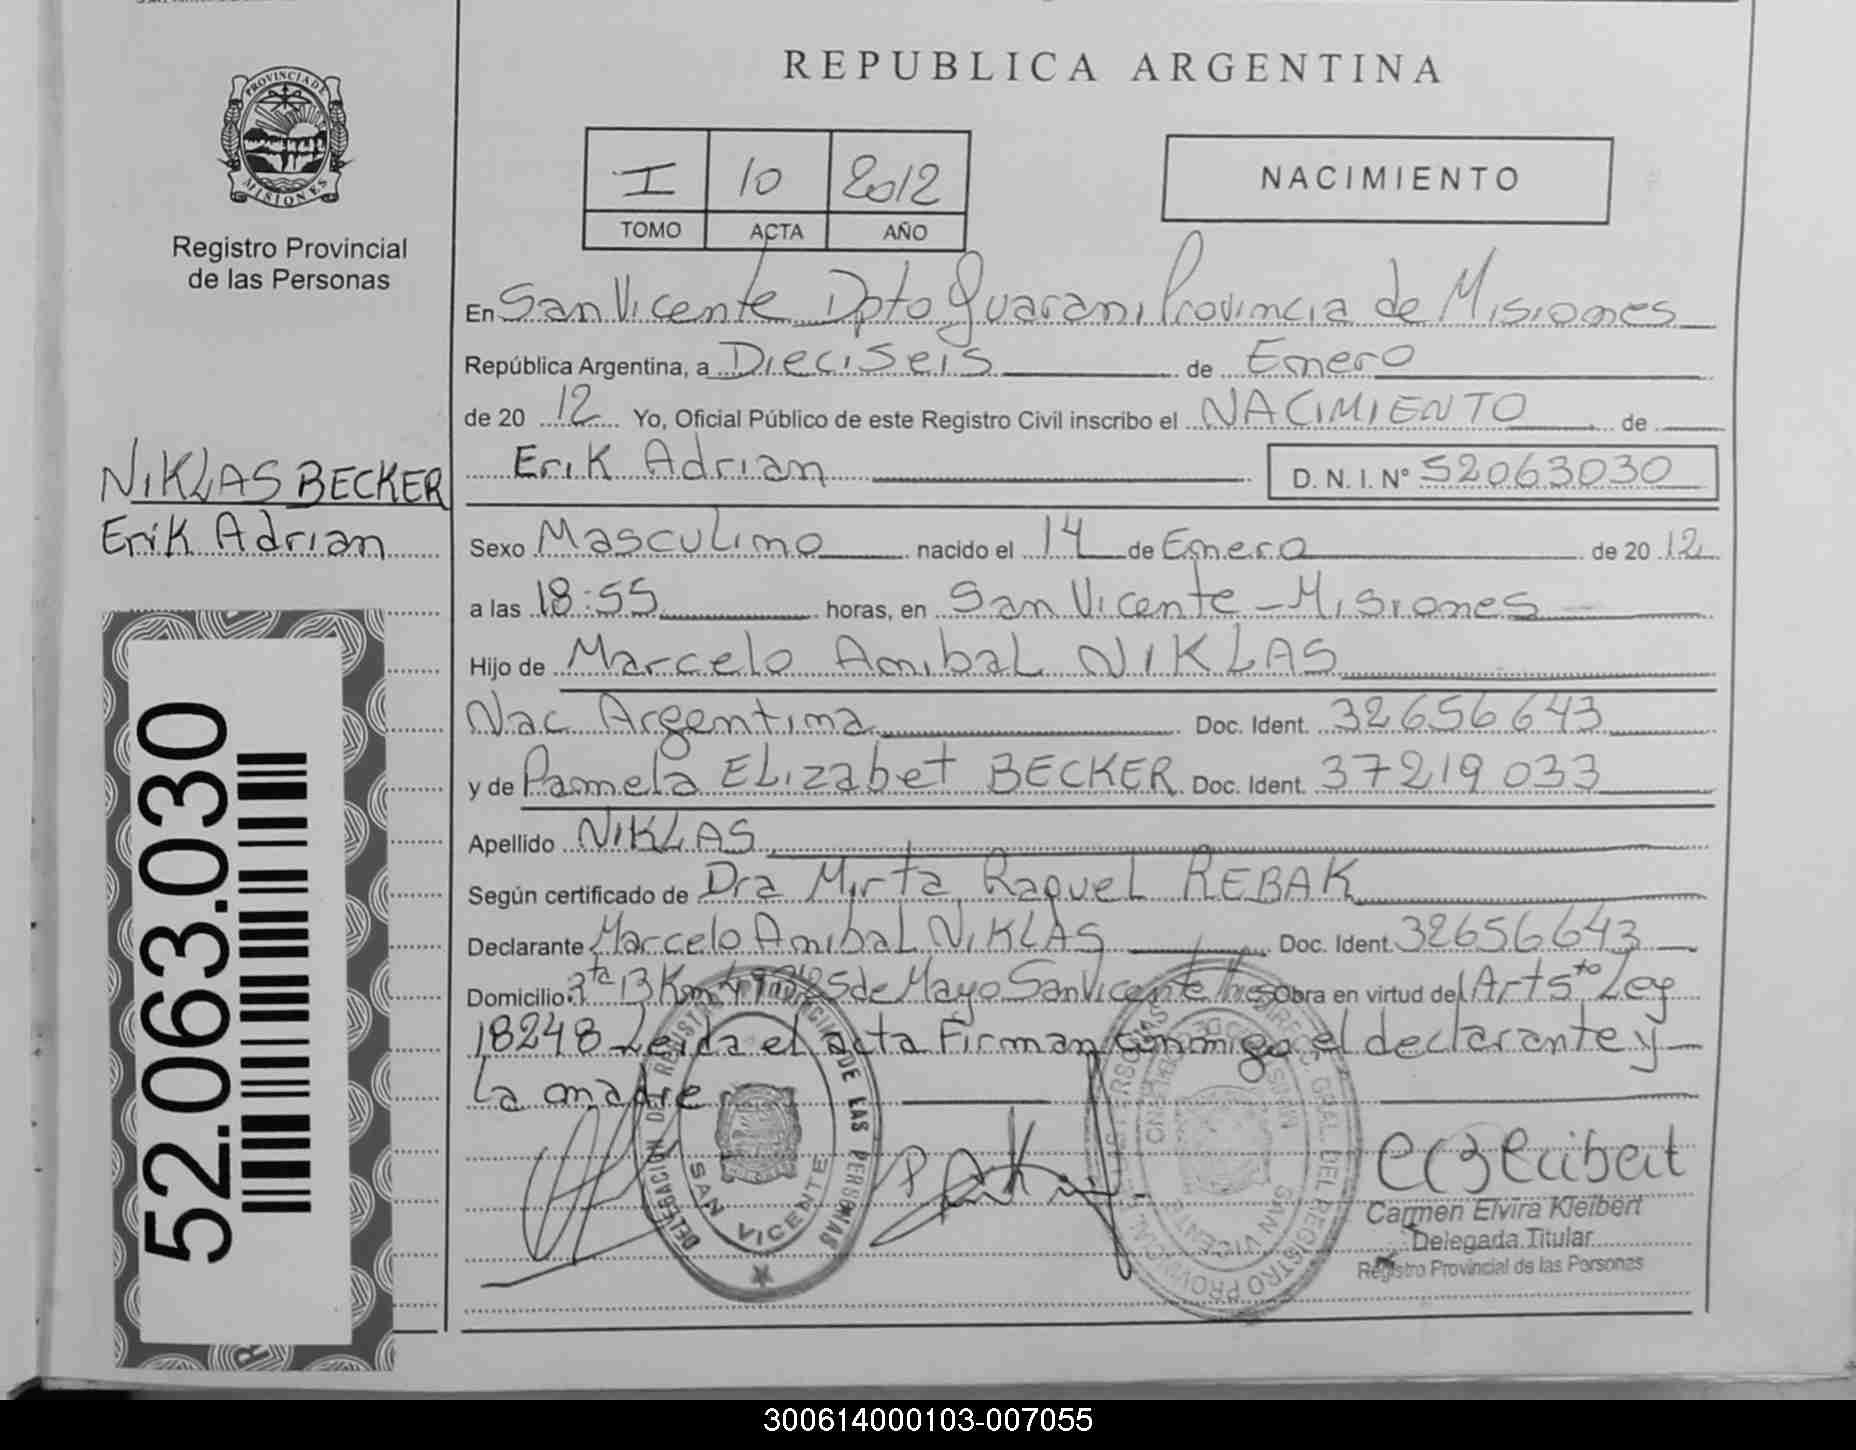 REPUBLICA ARGENTINA
PROVINCIA DE
MISIONES
Registro Provincial
de las Personas
I 10 2012
TOMO ACTA AÑO
NACIMIENTO
En San Vicente Dpto Guarani Provincia de Misiones
República Argentina, a Dieciseis de Enero
de 20 12 Yo, Oficial Público de este Registro Civil inscribo el NACIMIENTO de
Erik Adrian D. N. I. Nº 52063030
NIKLAS BECKER
Erik Adrian
Sexo Masculino nacido el 14 de Enero de 20 12
a las 18:55 horas, en San Vicente - Misiones
Hijo de Marcelo Anibal NIKLAS
Nac Argentina Doc. Ident. 32656643
y de Pamela Elizabet BECKER Doc. Ident. 37219033
Apellido NIKLAS
Según certificado de Dra Mirta Raquel REBAK
Declarante Marcelo Anibal NIKLAS Doc. Ident. 32656643
Domicilio 13 Km 25 de Mayo San Vicente Obra en virtud del Art 5to Ley
18248 Leida el acta Firman conmigo el declarante y
la madre
52.063.030
DELEGACION DO REGISTRO PROVINCIAL DE LAS PERSONAS
SAN VICENTE
Carmen Elvira Kleibert
Delegada Titular
Registro Provincial de las Personas
300614000103-007055